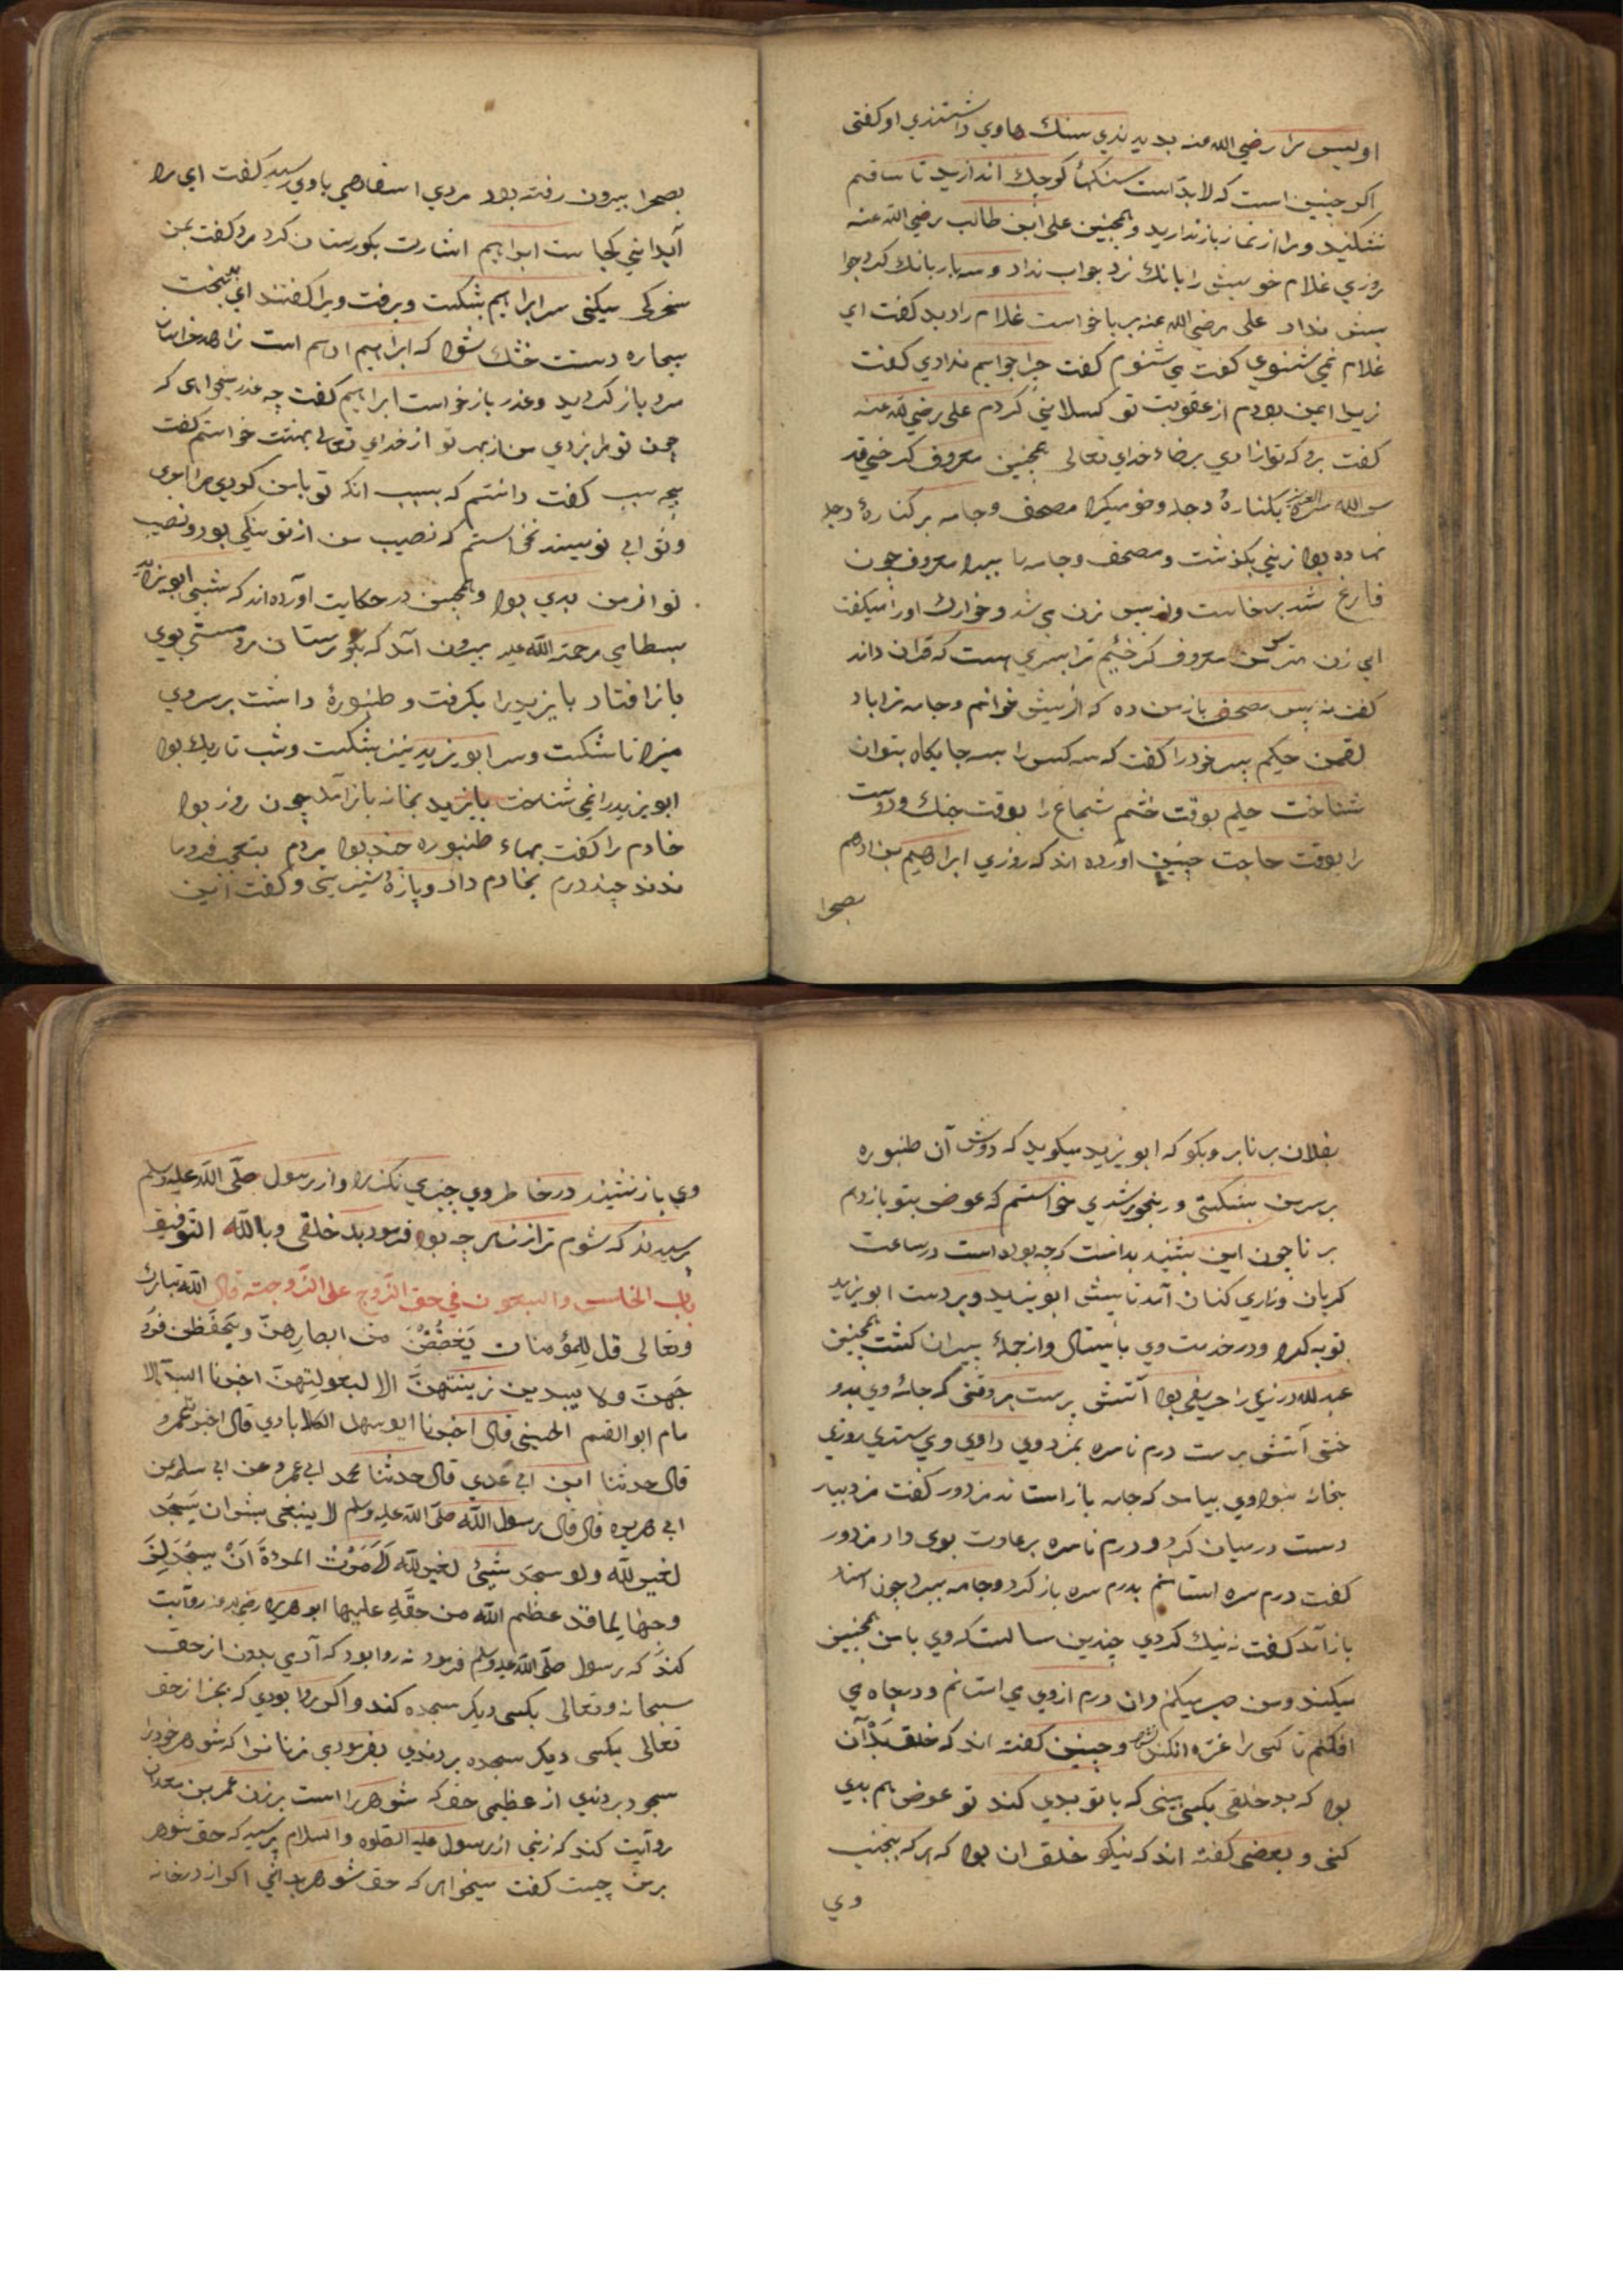 اویس را رضي الله عنه بدیدندي سنك ها وي داشتندي او کفتی
اکر جنین است که لا بد است سنکهٔا کوجك اندازید تا ساقم
نشکنید و مرا از نماز باز ندارید و همجنین علی ابن طالب رضي الله عنه
روزي غلام خویش را بانك زد جواب نداد و سه بار بانك کرد جوا
بش نداد علی رضي الله عنه بر پا خواست غلام را دید کفت اي
غلام نمي شنوي کفت مي شنوم کفت جرا جوابم ندادي کفت
زیرا ایمن بودم از عقوبت تو کسلاني کردم علی رضي الله عنه
کفت برو که تو ازادي برضاء خداي تعالی همجنین معروف کرخي قد
س الله سره العزیز بکنارهٔ دجله وضو میکرد مصحف و جامه بر کنارهٔ دجله
نهاده بود زني بکذشت و مصحف و جامه را ببرد معروف جون
فارغ شد برخاست و از پس زن مي شد و خوارك اورا میکفت
اي زن مترس من معروف کرخیم ترا پسري هست که قران داند
کفت نه پس مصحف باز من ده که از پیش خوانم و جامه ترا باد
لقمن حکیم پسر خود را کفت که سه کس را بسه جایکاه بتوان
شناخت حلیم بوقت خشم شجاع را بوقت جنك و دوست
را بوقت حاجت جنین اورده اند که روزي ابراهیم بن ادهم
بصحرا
بصحرا بیرون رفته بود مردي اسفاهي باوي رسید کفت اي مرد
آبداني کجاست ابراهیم اشارت بکورستان کرد مرد کفت بمن
سخرکی میکنی سر ابراهیم بشکست و برفت ویرا کفتند اي بدبخت
بیچاره دستت خشك شود که ابراهیم ادهم است زاهد خراسان
مرد باز کردید و عذر باز خواست ابراهیم کفت چه عذر میخواهي که
چون تو مرا بزدي من از بهر تو از خداي تعالی بهشت خواستم کفت
بچه سبب کفت دانستم که بسبب انکه تو با من کردي مرا
نخواستم که نصیب من از تو نیکي بود و نصیب
تو از من بدي بود و همجنین در حکایت آورده اند که شبي ابو یزید
بسطامي رحمة الله علیه بیرون آمد که بکورستان رود مستي بوي
باز افتاد بایزید را بکرفت و طنبورهٔ داشت بر سر وي
میزد تا شکست و سر ابو یزید نیز بشکست و شب تاریك بود
ابو یزید را نمي شناخت بایزید بخانه باز آمد چون روز بود
خادم را کفت بهاء طنبوره جند بود مردم بتعجب فرو ما
ندند چند درم بخادم داد و پارهٔ شیریني و کفت این
بفلان برنا بر و بکو که ابو یزید میکوید که دوش آن طنبوره
بر سر من بشکستي و رنجور شدي خواستم که عوض بتو باز دهم
برنا چون این بشنید بدانست که چه بوده است در ساعت
کریان و زاري کنان آمد تا پیش ابو یزید و بر دست ابو یزید
توبه کرد و در خدمت وي بایستاد و از جملهٔ پیران کشت همجنین
عبد الله درزي را حریفي بود آتش پرست هر وقتی که جامهٔ وي بدو
ختي آتش پرست درم ناسره بمزد وي دادي وي بستدي روزي
بخانه نبود وي بیامد که جامه باز استاند مزدور کفت مزد بیار
دست در میان کرد و درم ناسره بر عادت بوي داد مزدور
کفت درم سره استانم بدرم سره باز کرد و جامه ببرد چون استاد
باز آمد کفت نه نیك کردي چندین سالست که وي با من همجنین
میکند و من صبر میکنم و ان درم ازوي مي استانم و در چاه مي
افکنم تا کسی را غره انکند و جنین کفته اند که خلق بد آن
بود که بد خلقی بکسي بیني که با تو بدي کند تو عوض هم بدي
کنی و بعضی کفته اند که نیکو خلق ان بود که هر که بجنب
وي
وي باز نشیند در خاطر وي چیزي نکذرد و از رسول صلی الله علیه وسلم
پرسیدند که شوم تر از زنان چه بود فرمود بد خلقی و بالله التوفیق
باب الخامس والسبعون في حق الزوج علی الزوجته قال الله تبارك
وتعالی قل للمؤمنات یغضضن من ابصارهن ویحفظن فرو
جهن ولا یبدین زینتهن الا لبعولتهن اخبرنا السید الا
مام ابو القسم الحسیني قال اخبرنا ابو سهل الکلابادي قال اخبرنا عمرو
قال حدثنا ابن ابي عدي قال حدثنا محمد ابي عمرو عن ابي سلمه عن
ابي هریره قال قال رسول الله صلی الله علیه وسلم لا ینبغی بشي ان یسجد
لغیر الله ولو سجد شیئ لغیر الله لامرت المرءة ان یسجد لز
وجها لما قد عظم الله من حقه علیها ابو هریره رضي الله عنه روایت
کند که رسول صلی الله علیه وسلم فرمود نه روا بود که آدمي بدون از حق
سبحانه وتعالی بکسی دیکر سجده کند و اکر روا بودي که بجز از حق
تعالی بکسی دیکر سجده بردندي بفرمودي زنانرا که شوهر خود را
سجود بردندي از عظیمی حق که شوهر را است بر زن عمر بن معدان
روایت کند که زني از رسول علیه الصلوه والسلام پرسید که حق شوهر
بر من چیست کفت میخواهي که حق شوهر بداني اکر از در خانه